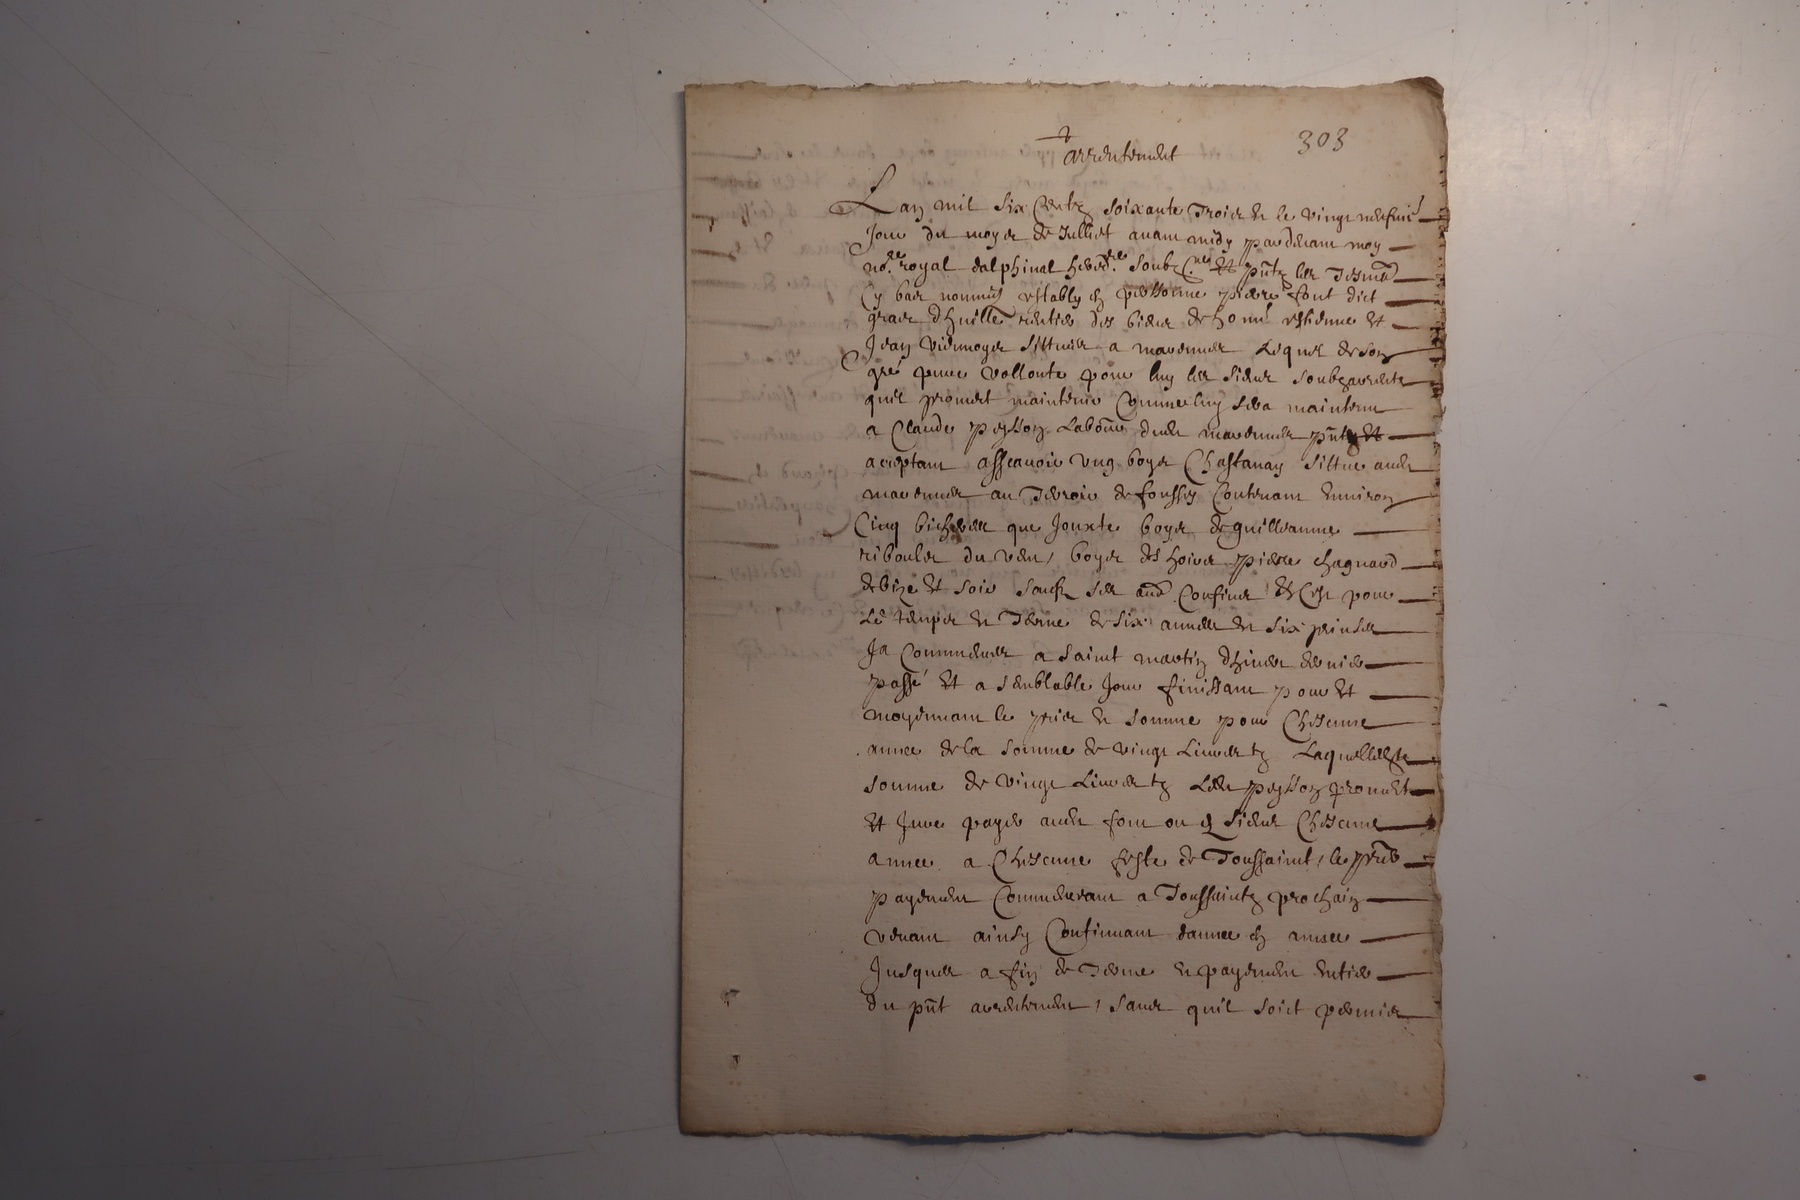 303
arrentement
Lan mil six centz soixante trois et le vingt neufvie
jour du moys de Julliet avant midy par devant moy
no.re royal dalphinal hered.re soubz.né et pntz les tesmoi
cy bas nommés estably en personne pierre font dict
graes dhuille rentier des biens de hon estienne et
Jean viennoys sittues a mavennes lequel de son
gré pure vollonte pour luy les siens soubzarrente
quil promet maintenir comme luy sera maintenu
a Claude peysson labour dudt mavennes pnt et
aceptant assavoir ung boys chastanay sittue audt
mavennes au terroir de foussy contenant environ
cinq bicherees que jouxte boys de guilleaume
riboules du vent, boys des hoirs pierre chagnard
de bize et soir sauf ses aud confins et ce pour
le temps et terme de six annees et six prinses
ja commences a saint martin dhiver dernier
passé et a semblable jour finissant pour et
moyennant le pris et somme pour chescune
annee de la somme de vingt livres tz laquelle
somme de vingt livres tz ledt peysson promet
et jure payer audt font ou es siens chescune
annee a chescune feste de Toussaint, le prier
payement commensant a Toussaintz prochain
venant ainsy continuant dannee en annee
jusques a fin de terme et payement entier
du pnt arrentement, sans quil soict permis